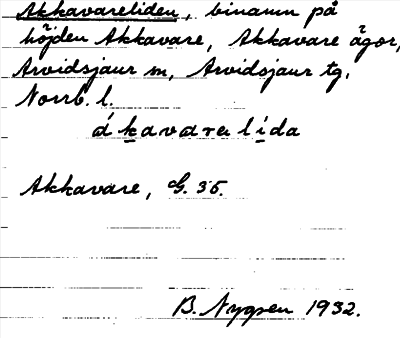 Akkavareliden, binamn på
höjden Akkavare, Akkavare ägor,
Arvidsjaur sn, Arvidsjaur tg,
Norrb. l.
ákavarelída
Akkavare, G. 35.
B. Nygren 1932.